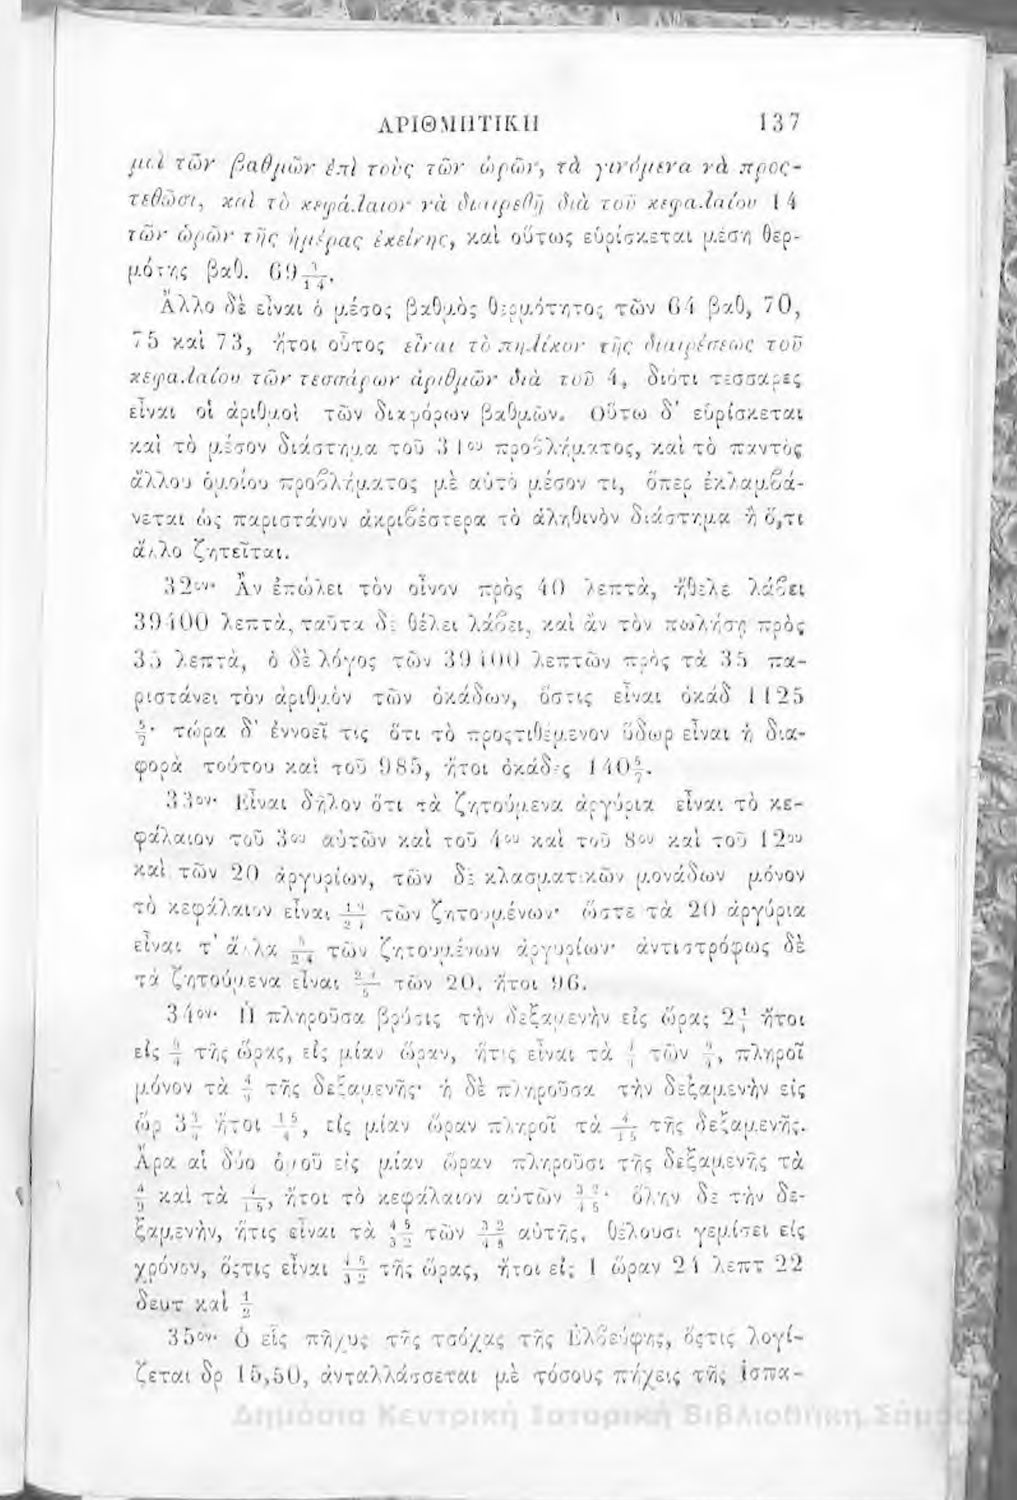 ΑΡΙΘΜΗΤΙΚΗ 137
μοὶ τῶν βαθμῶν ἐπὶ τοὺς τῶν ὡρῶν, τὰ γινόμενα νὰ προς-
τεθῶσι, καὶ τὸ κεφάλαιον νὰ διαιρεθῇ διὰ τοῦ κεφαλαίου 14
τῶν ὡρῶν τῆς ἡμέρας ἐκείνης, καὶ οὕτως εὑρίσκεται μέση θερ-
μότης βαθ. 69
Ἄλλο δὲ εἶναι ὁ μέσος βαθμὸς θερμότητος τῶν 64 βαθ, 70,
75 καὶ 73, ἤτοι οὗτος εἶναι τὸ πηλίκον τῆς διαιρέσεως τοῦ
κεφαλαίου τῶν τεσσάρων ἀριθμῶν διὰ τοῦ 4, διότι τέσσαρες
εἶναι οἱ ἀριθμοὶ τῶν διαφόρων βαθμῶν. οὕτω δ' εὑρίσκεται
καὶ τὸ μέσον διάστημα τοῦ 31ου προβλήματος, καὶ τὸ παντὸς
ἄλλου ὁμοίου προβλήματος μὲ αὐτὸ μέσον τι, ὅπερ ἐκλαμβά-
νεται ὡς παριστάνον ἀκριβέστερα τὸ ἀληθινὸν διάστημα ἢ ὅ,τι
ἄλλο ζητεῖται.
32ον· Ἂν ἐπώλει τὸν οἶνον πρὸς 40 λεπτὰ, ἤθελε λάβει
39400 λεπτὰ, ταῦτα δὲ θέλει λάβει, καὶ ἂν τὸν πωλήσῃ πρὸς
35 λεπτὰ, ὁ δὲ λόγος τῶν 39400 λεπτῶν πρὸς τὰ 35 πα-
ριστάνει τὸν ἀριθμὸν τῶν ὀκάδων, ὅστις εἶναι ὀκάδ 1125
5/7· τώρα δ' ἐννοεῖ τις ὅτι τὸ προςτιθέμενον ὕδωρ εἶναι ἡ δια-
φορὰ τούτου καὶ τοῦ 985, ἤτοι ὀκάδες 140 5/7.
33ον· Εἶναι δῆλον ὅτι τὰ ζητούμενα ἀργύρια εἶναι τὸ κε-
φάλαιον τοῦ 3ου αὐτῶν καὶ τοῦ 4ου καὶ τοῦ 8ου καὶ τοῦ 12ου
καὶ τῶν 20 ἀργυρίων, τῶν δὲ κλασματικῶν μονάδων μόνον
τὸ κεφάλαιον εἶναι 19/24 τῶν ζητουμένων· ὥστε τὰ 20 ἀργύρια
εἶναι τ' ἄλλα 5/24 τῶν ζητουμένων ἀργυρίων· ἀντιστρόφως δὲ
τὰ ζητούμενα εἶναι 24/5 τῶν 20, ἤτοι 96.
34ον· Ἡ πληροῦσα βρύσις τὴν δεξαμενὴν εἰς ὥρας 2 1/4 ἤτοι
εἰς 9/4 τῆς ὥρας, εἰς μίαν ὥραν, ἥτις εἶναι τὰ 4/9 τῶν 9/4, πληροῖ
μόνον τὰ 4/9 τῆς δεξαμενῆς· ἡ δὲ πληροῦσα τὴν δεξαμενὴν εἰς
ὥρ 3 3/4 ἤτοι 15/4, εἰς μίαν ὥραν πληροῖ τὰ 4/15 τῆς δεξαμενῆς.
Ἄρα αἱ δύο ὁμοῦ εἰς μίαν ὥραν πληροῦσι τῆς δεξαμενῆς τὰ
4/9 καὶ τὰ 4/15, ἤτοι τὸ κεφάλαιον αὐτῶν 32/45· ὅλην δὲ τὴν δε-
ξαμενὴν, ἥτις εἶναι τὰ 45/32 τῶν 32/45 αὐτῆς, θέλουσι γεμίσει εἰς
χρόνον, ὅςτις εἶναι 45/32 τῆς ὥρας, ἤτοι εἰς 1 ὥραν 24 λεπτ 22
δευτ καὶ 1/2
35ον· Ὁ εἷς πῆχυς τῆς τσόχας τῆς Ἐλβεύφης, ὅςτις λογί-
ζεται δρ 15,50, ἀνταλλάσσεται μὲ τόσους πήχεις τῆς Ἱσπα-
Δημόσια Κεντρική Ιστορική Βιβλιοθήκη Σάμου